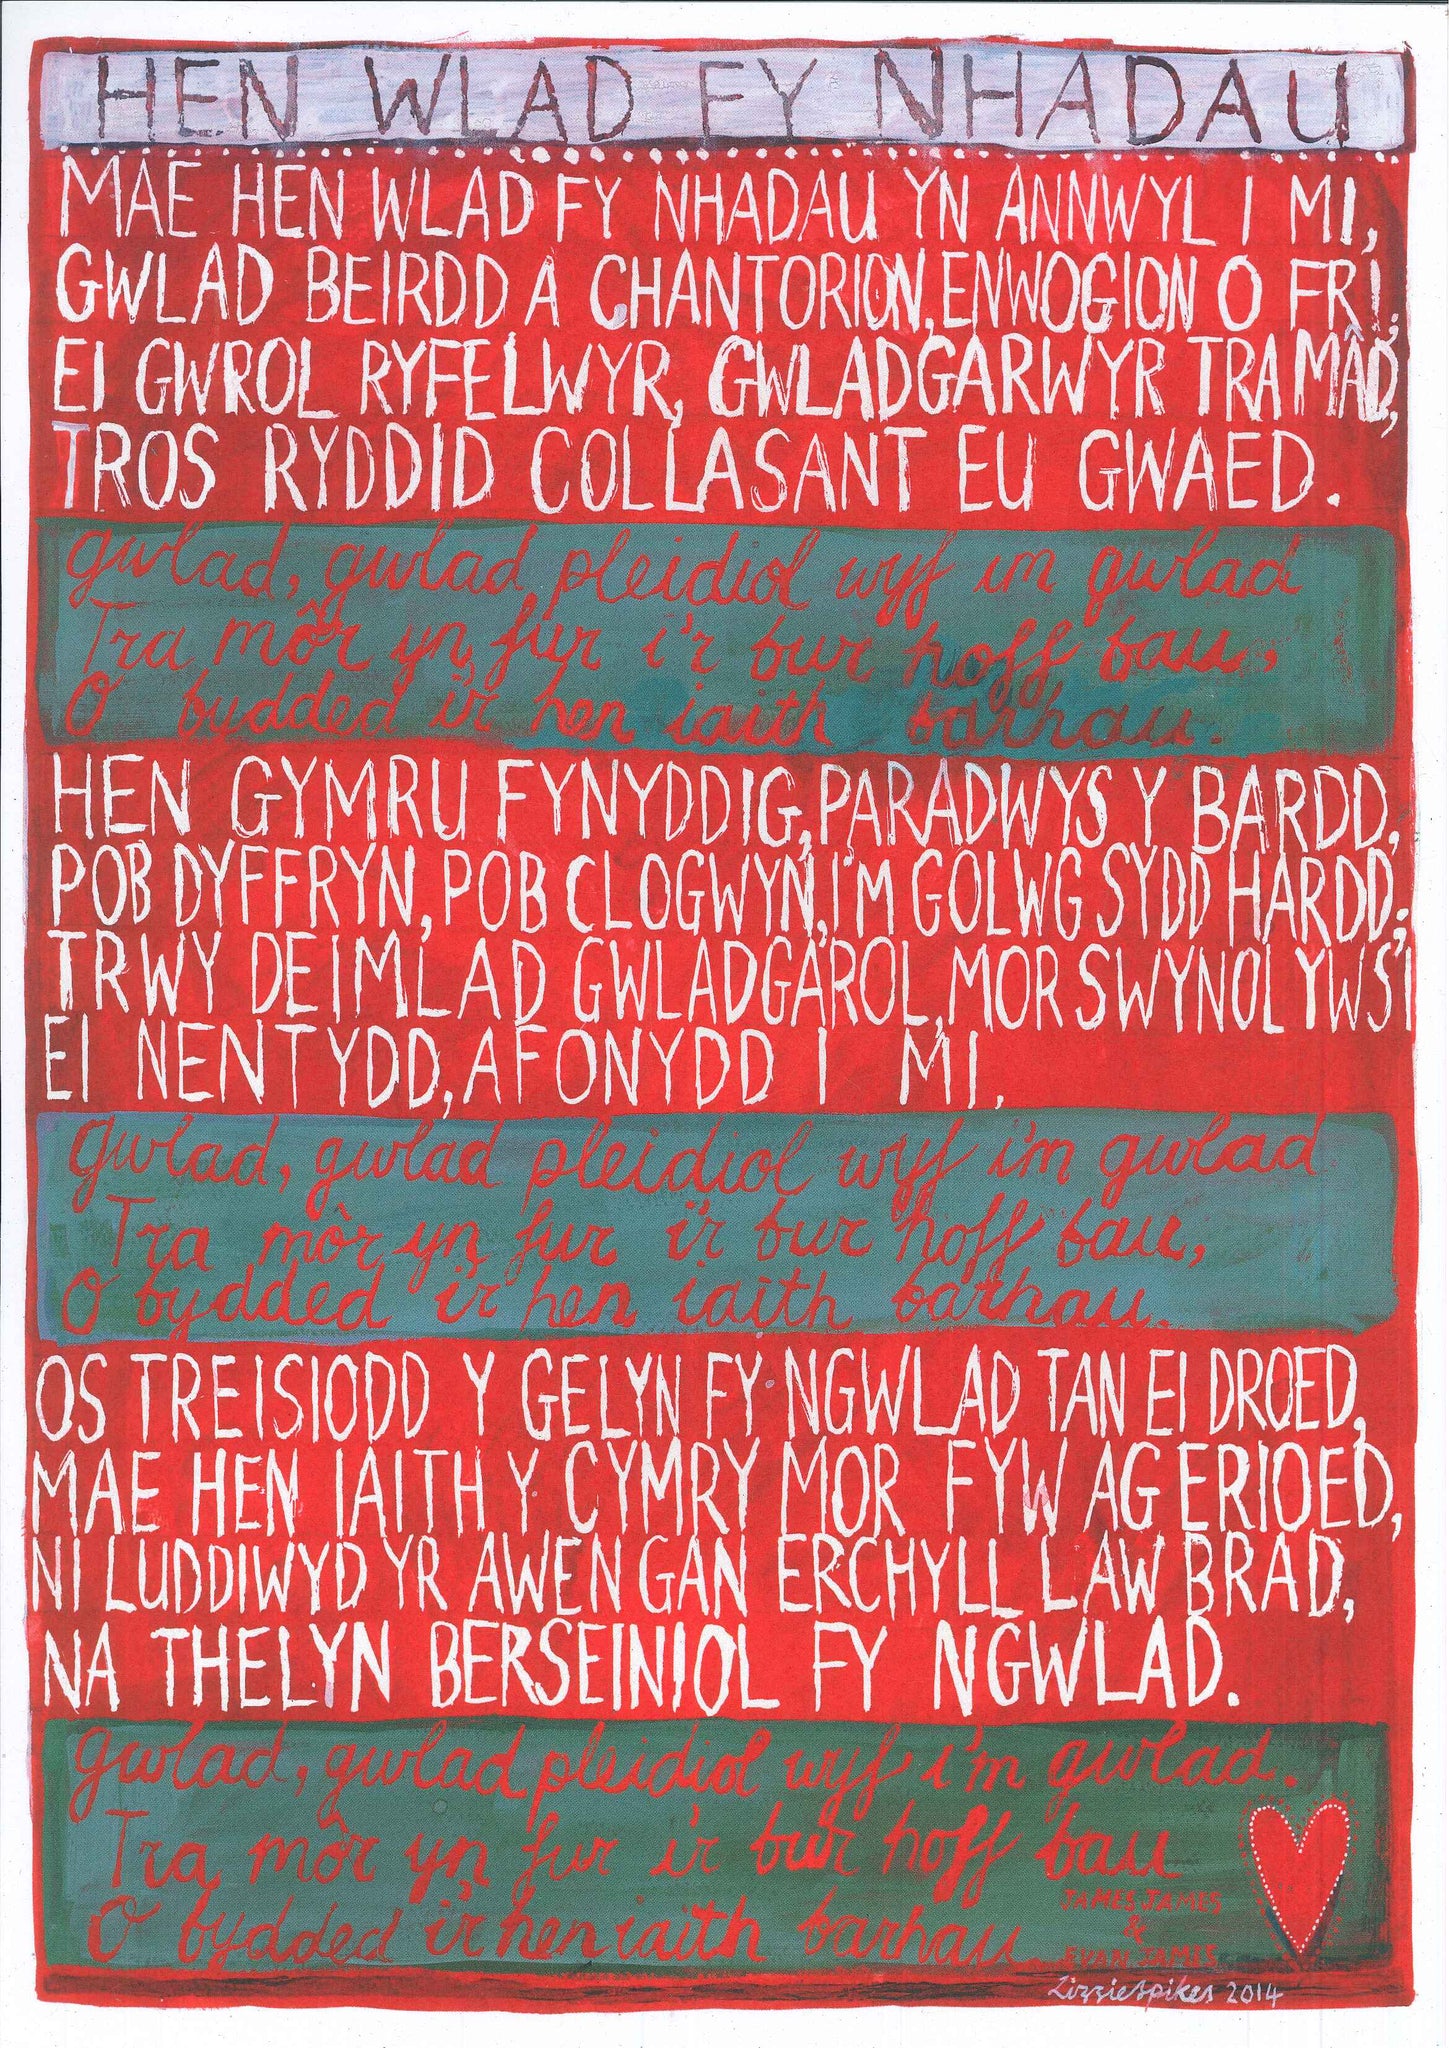 HEN WLAD FY NHADAU
MAE HEN WLAD FY NHADAU YN ANNWYL I MI,
GWLAD BEIRDD A CHANTORION, ENWOGION O FRI,
EI GWROL RYFELWYR, GWLADGARWYR TRA MÂD,
TROS RYDDID COLLASANT EU GWAED.
gwlad, gwlad pleidiol wyf im gwlad
Tra môr yn fur i'r bur hoff bau,
O bydded i'r hen iaith barhau.
HEN GYMRU FYNYDDIG, PARADWYS Y BARDD,
POB DYFFRYN, POB CLOGWYN, I'M GOLWG SYDD HARDD;
TRWY DEIMLAD GWLADGAROL, MOR SWYNOL YW SI
EI NENTYDD, AFONYDD I MI.
gwlad, gwlad pleidiol wyf i'm gwlad
Tra môr yn fur i'r bur hoff bau,
O bydded i'r hen iaith barhau.
OS TREISIODD Y GELYN FY NGWLAD TAN EI DROED,
MAE HEN IAITH Y CYMRY MOR FYW AG ERIOED,
NI LUDDIWYD YR AWEN GAN ERCHYLL LAW BRAD,
NA THELYN BERSEINIOL FY NGWLAD.
gwlad, gwlad pleidiol wyf i'm gwlad.
Tra môr yn fur i'r bur hoff bau
O bydded i'r hen iaith barhau
JAMES JAMES
&
EVAN JAMES
Lizzie Spikes 2014